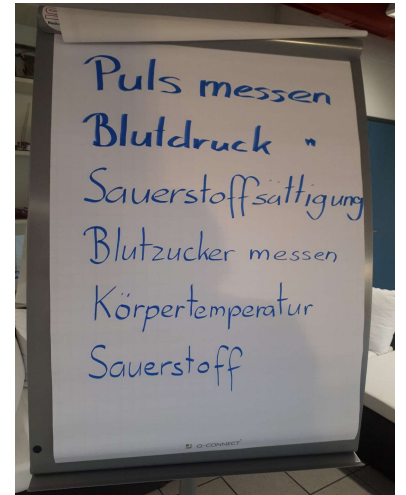 Puls messen
Blutdruck "
Sauerstoffsättigung
Blutzucker messen
Körpertemperatur
Sauerstoff
Q-CONNECT